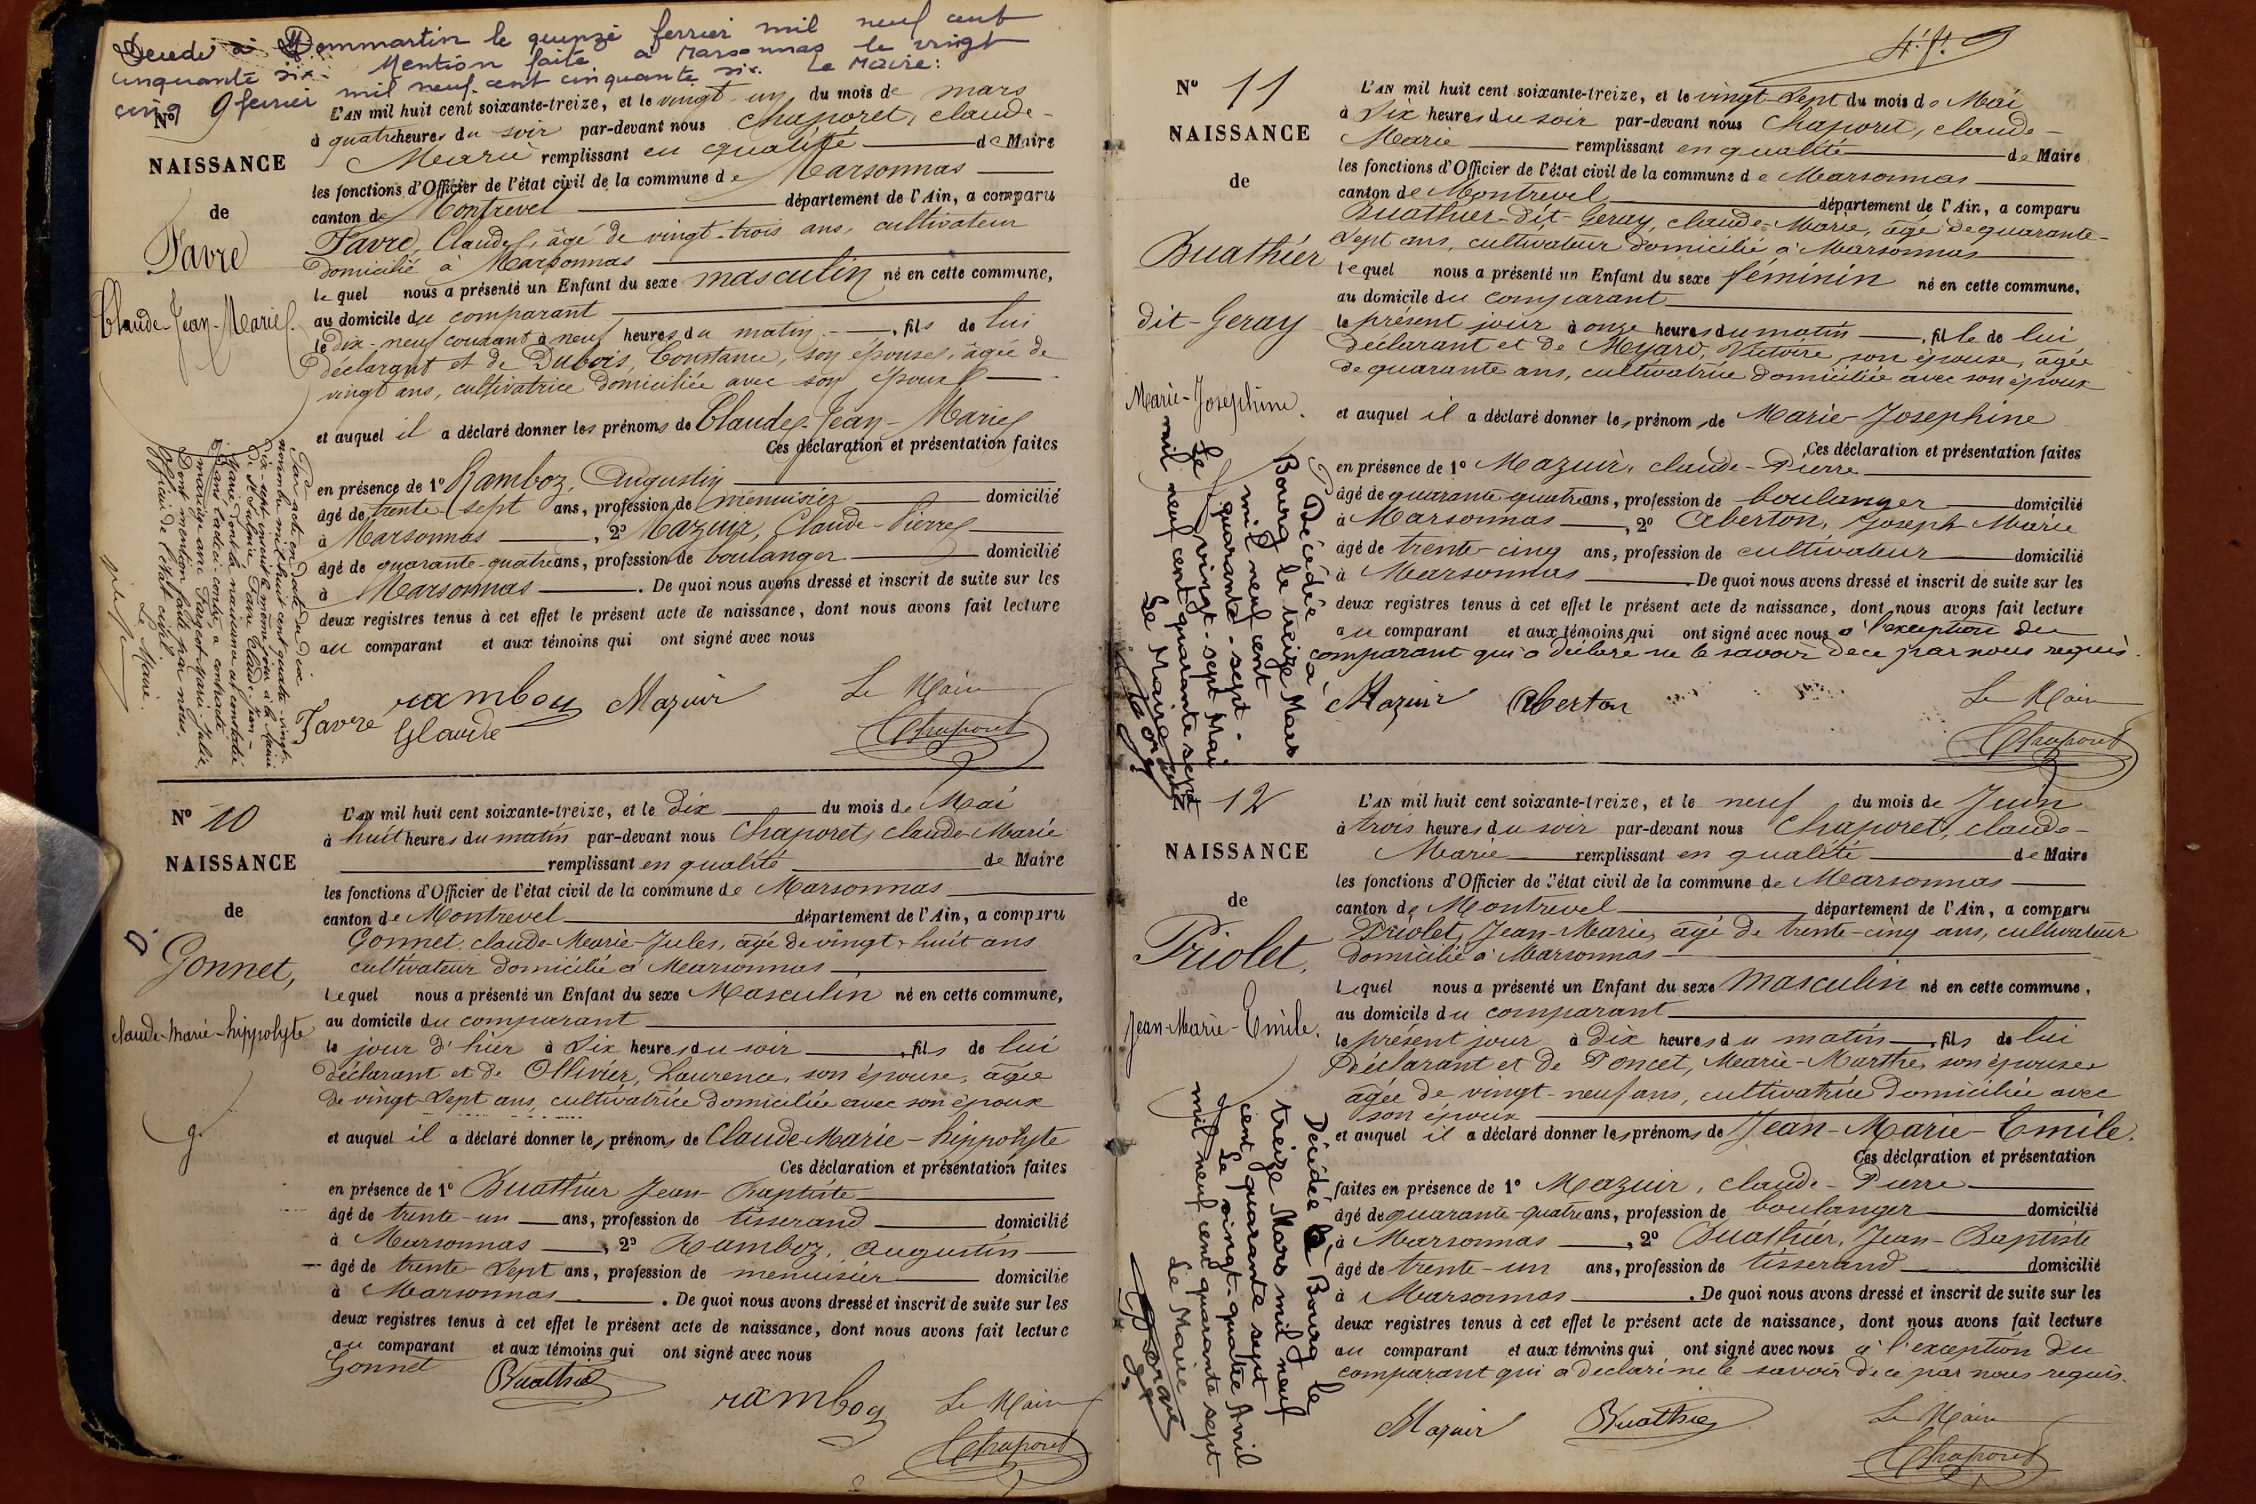 Decédé à Dommartin le quinze ferrier mil neuf cent
cinquante six. Mention faite à Marsonnas le vingt
cinq ferrier mil neuf cent cinquante six. Le Maire:
N° 9
NAISSANCE
de
Favre
Claude-Jean-Marie
L'AN mil huit cent soixante-treize, et le vingt-un du mois de mars
à quatre heures du soir par-devant nous Chaporet, claude-
Marie remplissant en qualité de Maire
les fonctions d'Officier de l'état civil de la commune de Marsonnas
canton de Montrevel département de l'Ain, a comparu
Favre, Claude, âgé de vingt-trois ans, cultivateur
domicilié à Marsonnas
lequel nous a présenté un Enfant du sexe masculin né en cette commune,
au domicile du comparant
le dix-neuf courant à neuf heures du matin, fils de lui
déclarant et de Dubois, Constance, son épouse, âgée de
vingt ans, cultivatrice domiciliée avec son époux
et auquel il a déclaré donner les prénoms de Claude-Jean-Marie
Ces déclaration et présentation faites
en présence de 1° Ramboz, Augustin
âgé de trente-sept ans, profession de menuisier domicilié
à Marsonnas, 2° Mazuir, Claude-Pierre
âgé de quarante-quatre ans, profession de boulanger domicilié
à Marsonnas. De quoi nous avons dressé et inscrit de suite sur les
deux registres tenus à cet effet le présent acte de naissance, dont nous avons fait lecture
au comparant et aux témoins qui ont signé avec nous
Favre Claude ramboz Mazuir Le Maire
Chaporet
Par acte en date du dix
novembre mil huit cent quatre-vingt-
dix-sept inscrit le même jour à la mairie
de St Sulpice, Favre Claude-Jean-
Marie dont la naissance est constatée
dans l'acte ci-contre, a contracté
mariage avec Fargeot Marie Julie,
Dont mention faite par nous,
Officier de l'état civil
Le Maire
N° 10
NAISSANCE
de
D.
Gonnet,
claude-marie-hippolyte
g.
L'AN mil huit cent soixante-treize, et le dix du mois de Mai
à huit heures du matin par-devant nous Chaporet, claude Marie
remplissant en qualité de Maire
les fonctions d'Officier de l'état civil de la commune de Marsonnas
canton de Montrevel département de l'Ain, a comparu
Gonnet, claude-Marie-Jules, âgé de vingt-huit ans
cultivateur domicilié à Marsonnas
Lequel nous a présenté un Enfant du sexe Masculin né en cette commune,
au domicile du comparant
le jour d'hier à six heures du soir, fils de lui
déclarant et de Ollivier, Laurence, son épouse, âgée
de vingt-sept ans, cultivatrice domiciliée avec son époux
et auquel il a déclaré donner les prénoms de Claude Marie-hippolyte
Ces déclaration et présentation faites
en présence de 1° Buathier Jean-Baptiste
âgé de trente-un ans, profession de tisserand domicilié
à Marsonnas, 2° Ramboz, Augustin
âgé de trente-sept ans, profession de menuisier domicilié
à Marsonnas. De quoi nous avons dressé et inscrit de suite sur les
deux registres tenus à cet effet le présent acte de naissance, dont nous avons fait lecture
au comparant et aux témoins qui ont signé avec nous
Gonnet Buathier ramboz Le Maire
Chaporet
N° 11
NAISSANCE
de
Buathier
dit-Geray
Marie-Josephine.
L'AN mil huit cent soixante-treize, et le vingt-sept du mois de Mai
à six heures du soir par-devant nous Chaporet, claude-
Marie remplissant en qualité de Maire
les fonctions d'Officier de l'état civil de la commune de Marsonnas
canton de Montrevel département de l'Ain, a comparu
Buathier-dit-Geray, claude-Marie, âgé de quarante-
sept ans, cultivateur domicilié à Marsonnas
lequel nous a présenté un Enfant du sexe féminin né en cette commune,
au domicile du comparant
le présent jour à onze heures du matin, fille de lui
déclarant et de Myard, Victoire, son épouse, âgée
de quarante ans, cultivatrice domiciliée avec son époux
et auquel il a déclaré donner les prénom de Marie-Josephine
Ces déclaration et présentation faites
en présence de 1° Mazuir, claude-Pierre
âgé de quarante quatre ans, profession de boulanger domicilié
à Marsonnas, 2° Aberton, Joseph Marie
âgé de trente-cinq ans, profession de cultivateur domicilié
à Marsonnas. De quoi nous avons dressé et inscrit de suite sur les
deux registres tenus à cet effet le présent acte de naissance, dont nous avons fait lecture
au comparant et aux témoins qui ont signé avec nous à l'exception du
comparant qui a déclaré ne le savoir de ce par nous requis.
Mazuir Aberton Le Maire
Chaporet
Décédée à
Bourg le treize Mars
mil neuf cent
quarante-sept.
Le vingt-sept Mai
mil neuf cent quarante sept
Le Maire
12
NAISSANCE
de
Priolet,
Jean-Marie-Emile.
L'AN mil huit cent soixante-treize, et le neuf du mois de Juin
à trois heures du soir par-devant nous Chaporet, claude-
Marie remplissant en qualité de Maire
les fonctions d'Officier de l'état civil de la commune de Marsonnas
canton de Montrevel département de l'Ain, a comparu
Priolet, Jean-Marie, âgé de trente-cinq ans, cultivateur
domicilié à Marsonnas
Lequel nous a présenté un Enfant du sexe Masculin né en cette commune,
au domicile du comparant
le présent jour à dix heures du matin, fils de lui
déclarant et de Poncet, Marie-Marthe, son épouse
âgée de vingt-neuf ans, cultivatrice domiciliée avec
son époux
et auquel il a déclaré donner les prénoms de Jean-Marie-Emile.
Ces déclaration et présentation
faites en présence de 1° Mazuir, claude-Pierre
âgé de quarante-quatre ans, profession de boulanger domicilié
à Marsonnas, 2° Buathier, Jean-Baptiste
âgé de trente-un ans, profession de tisserand domicilié
à Marsonnas. De quoi nous avons dressé et inscrit de suite sur les
deux registres tenus à cet effet le présent acte de naissance, dont nous avons fait lecture
au comparant et aux témoins qui ont signé avec nous à l'exception du
comparant qui a déclaré ne le savoir de ce par nous requis.
Mazuir Buathier Le Maire
Chaporet
Décédé à Bourg le
treize Mars mil neuf
cent quarante sept
Le vingt-quatre Avril
mil neuf cent quarante sept
Le Maire